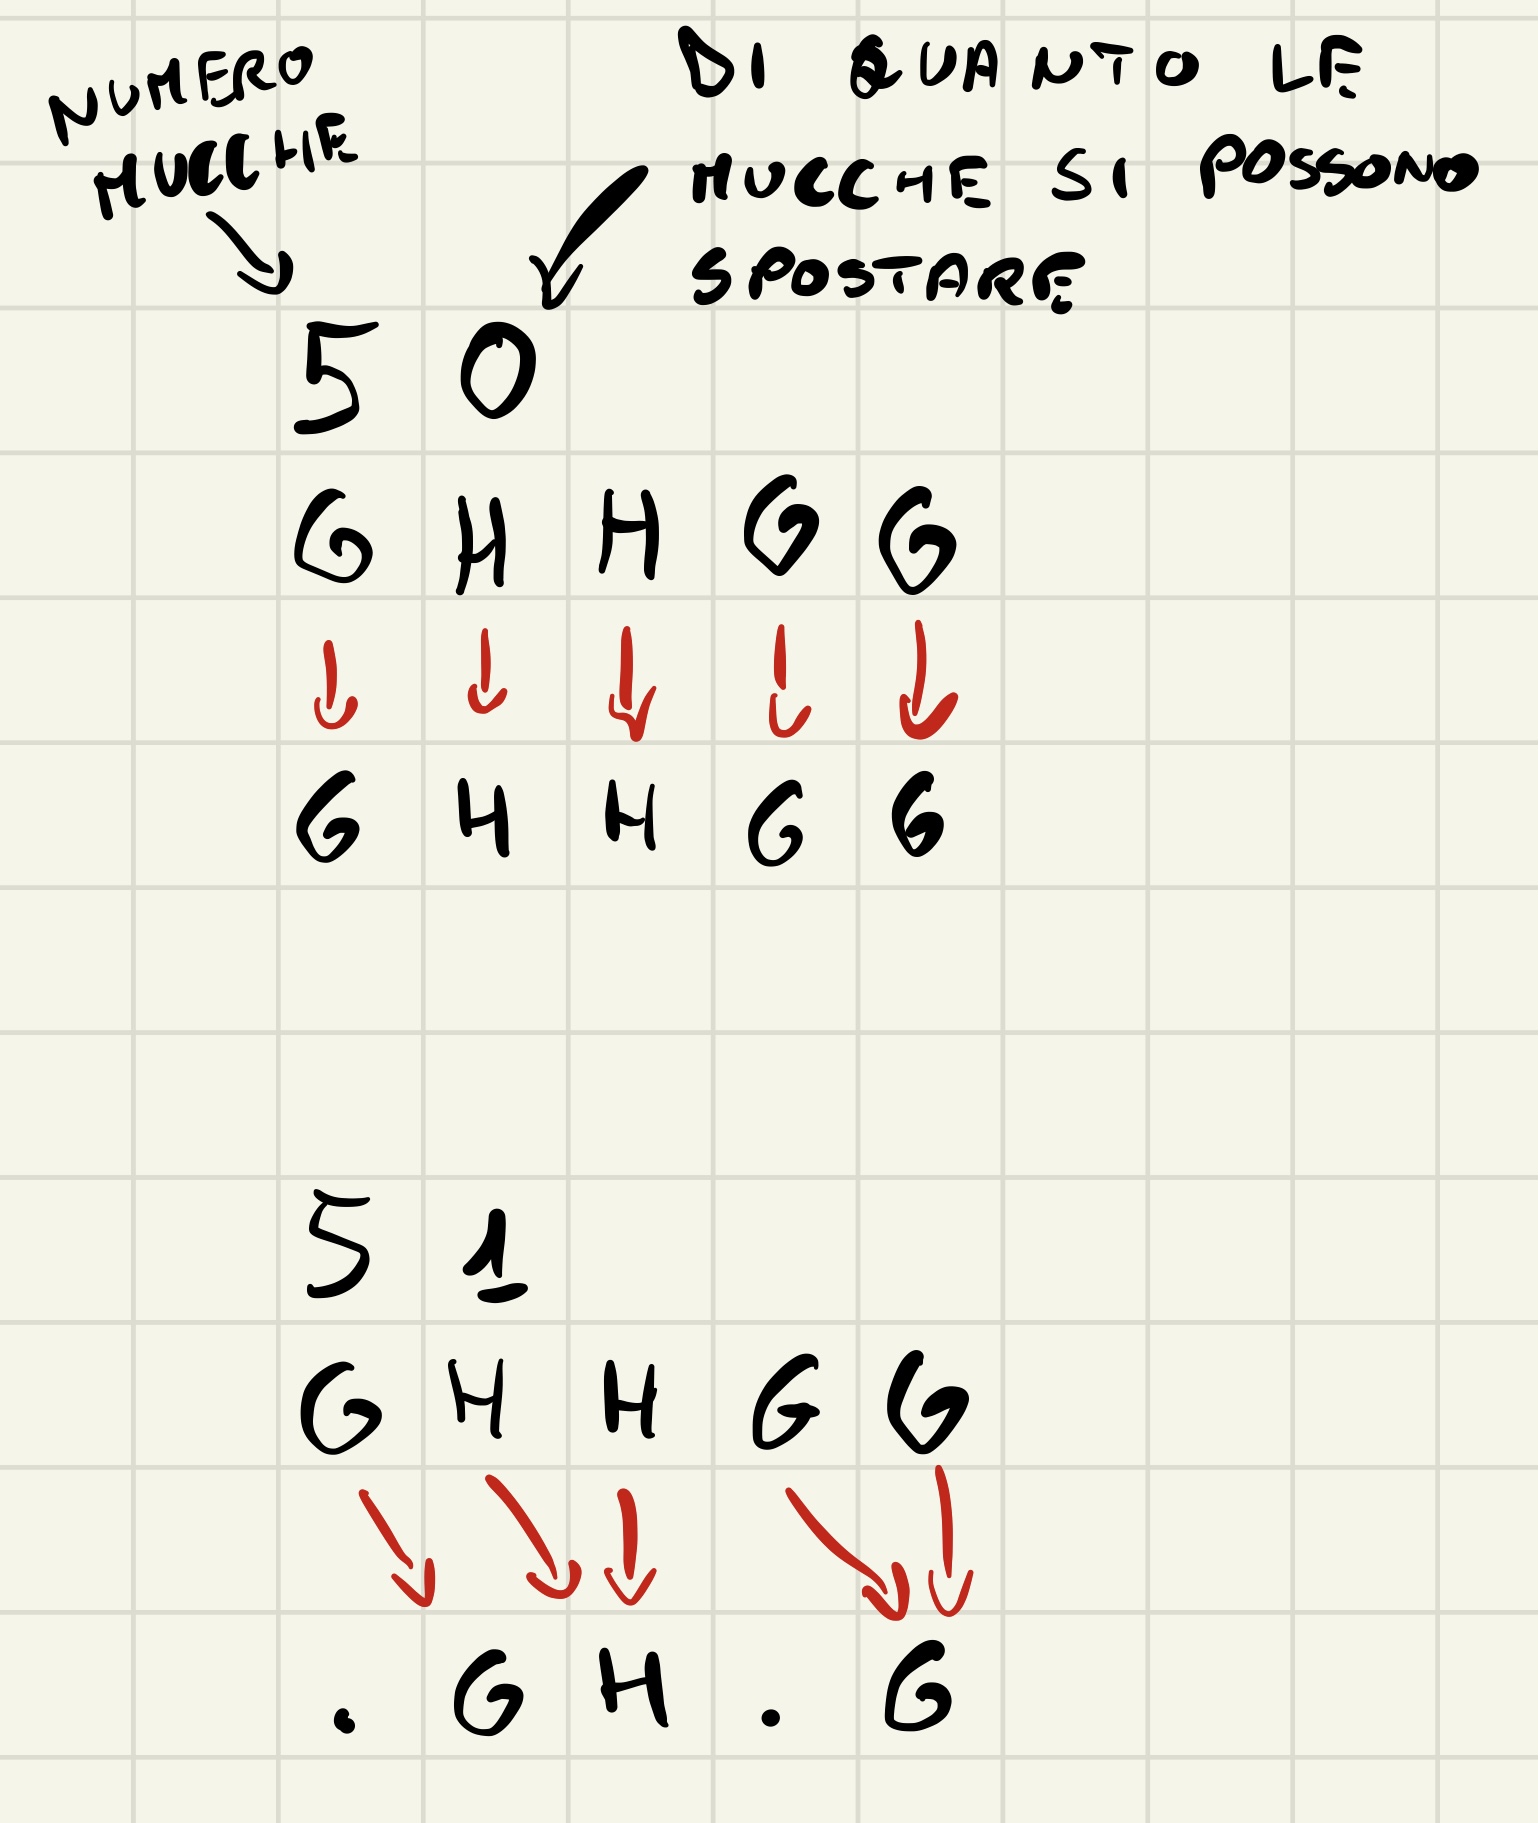 NUMERO
MUCCHE
DI QUANTO LE
MUCCHE SI POSSONO
SPOSTARE
5 0
G H H G G
G H H G G
5 1
G H H G G
. G H . G